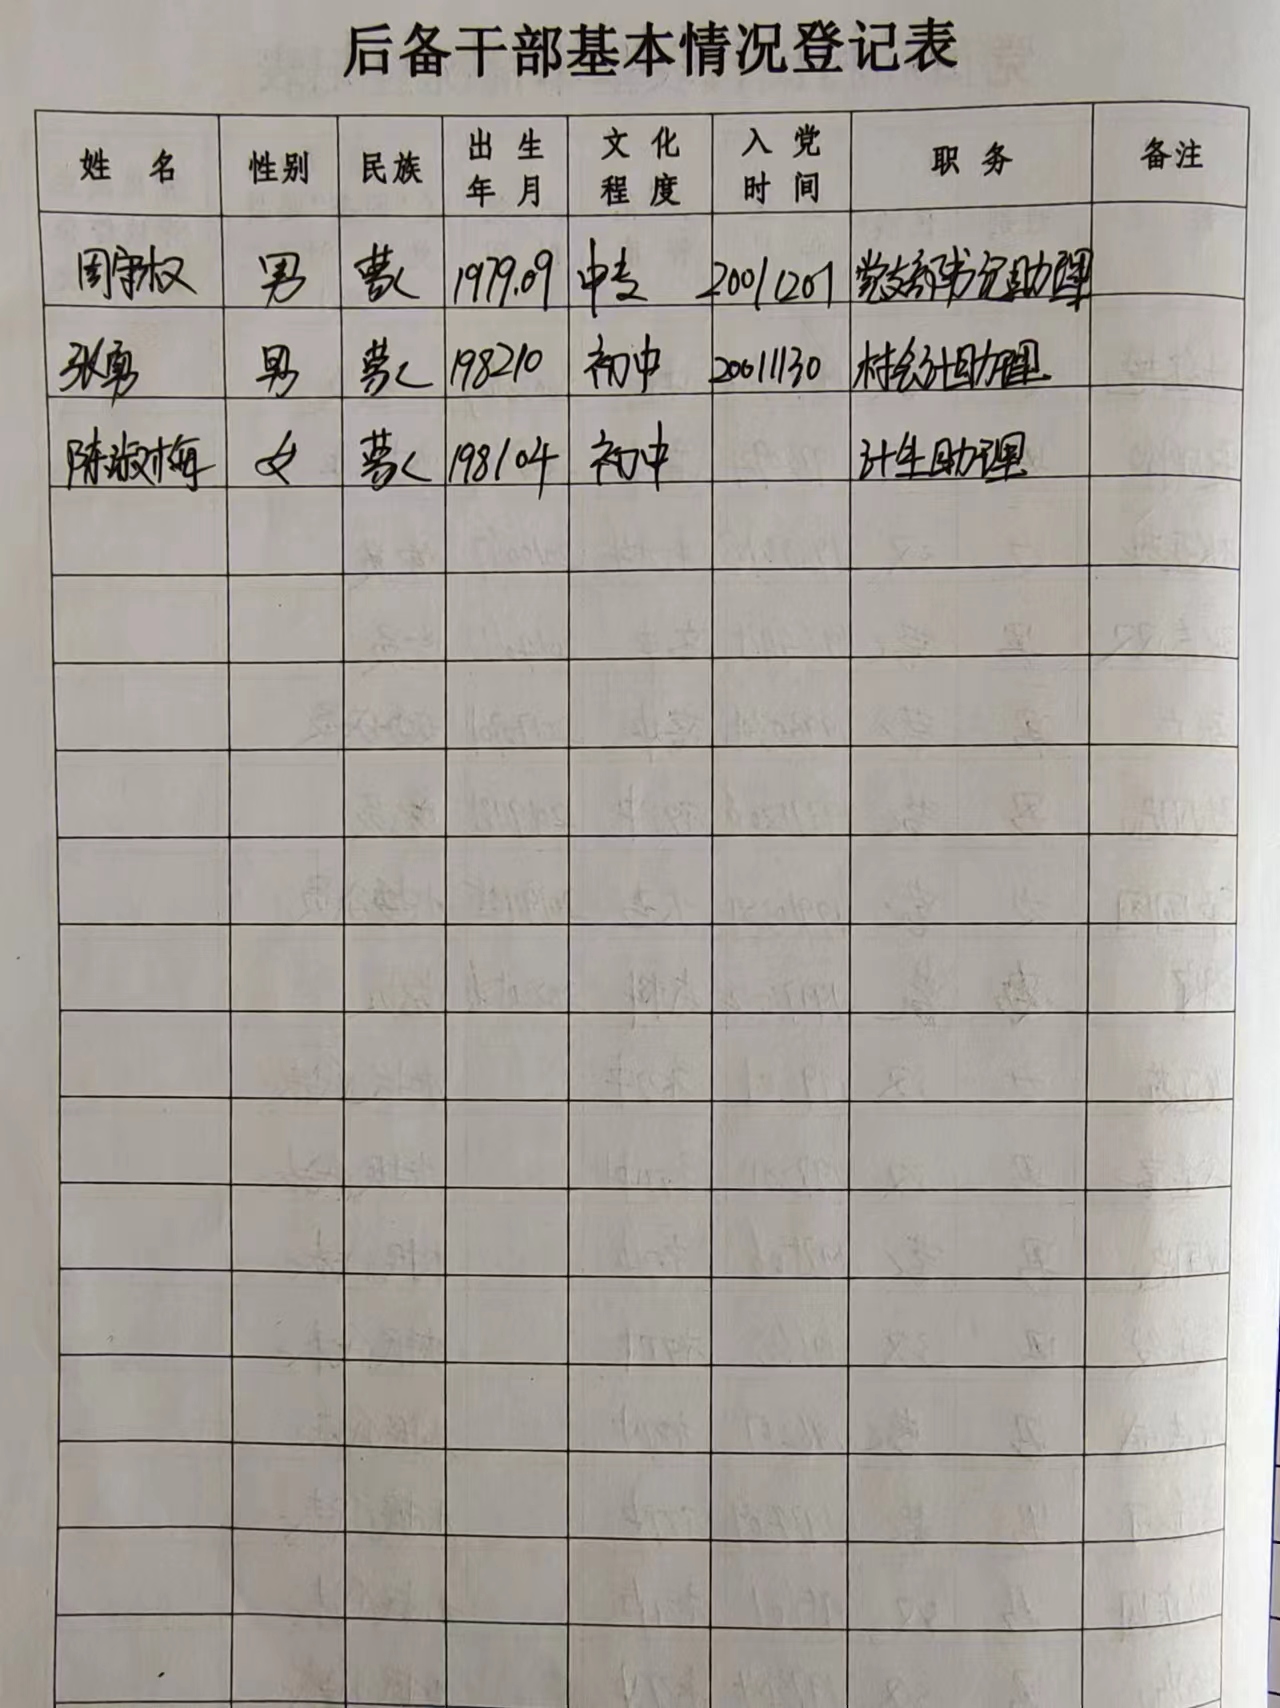 后备干部基本情况登记表
姓 名 性别 民族 出生年月 文化程度 入党时间 职务 备注
周宇权 男 蒙 1979.09 中专 20011201 党支部书记助理
张勇 男 蒙 198210 初中 20011130 村会计助理
陈淑梅 女 蒙 198104 初中 计生助理